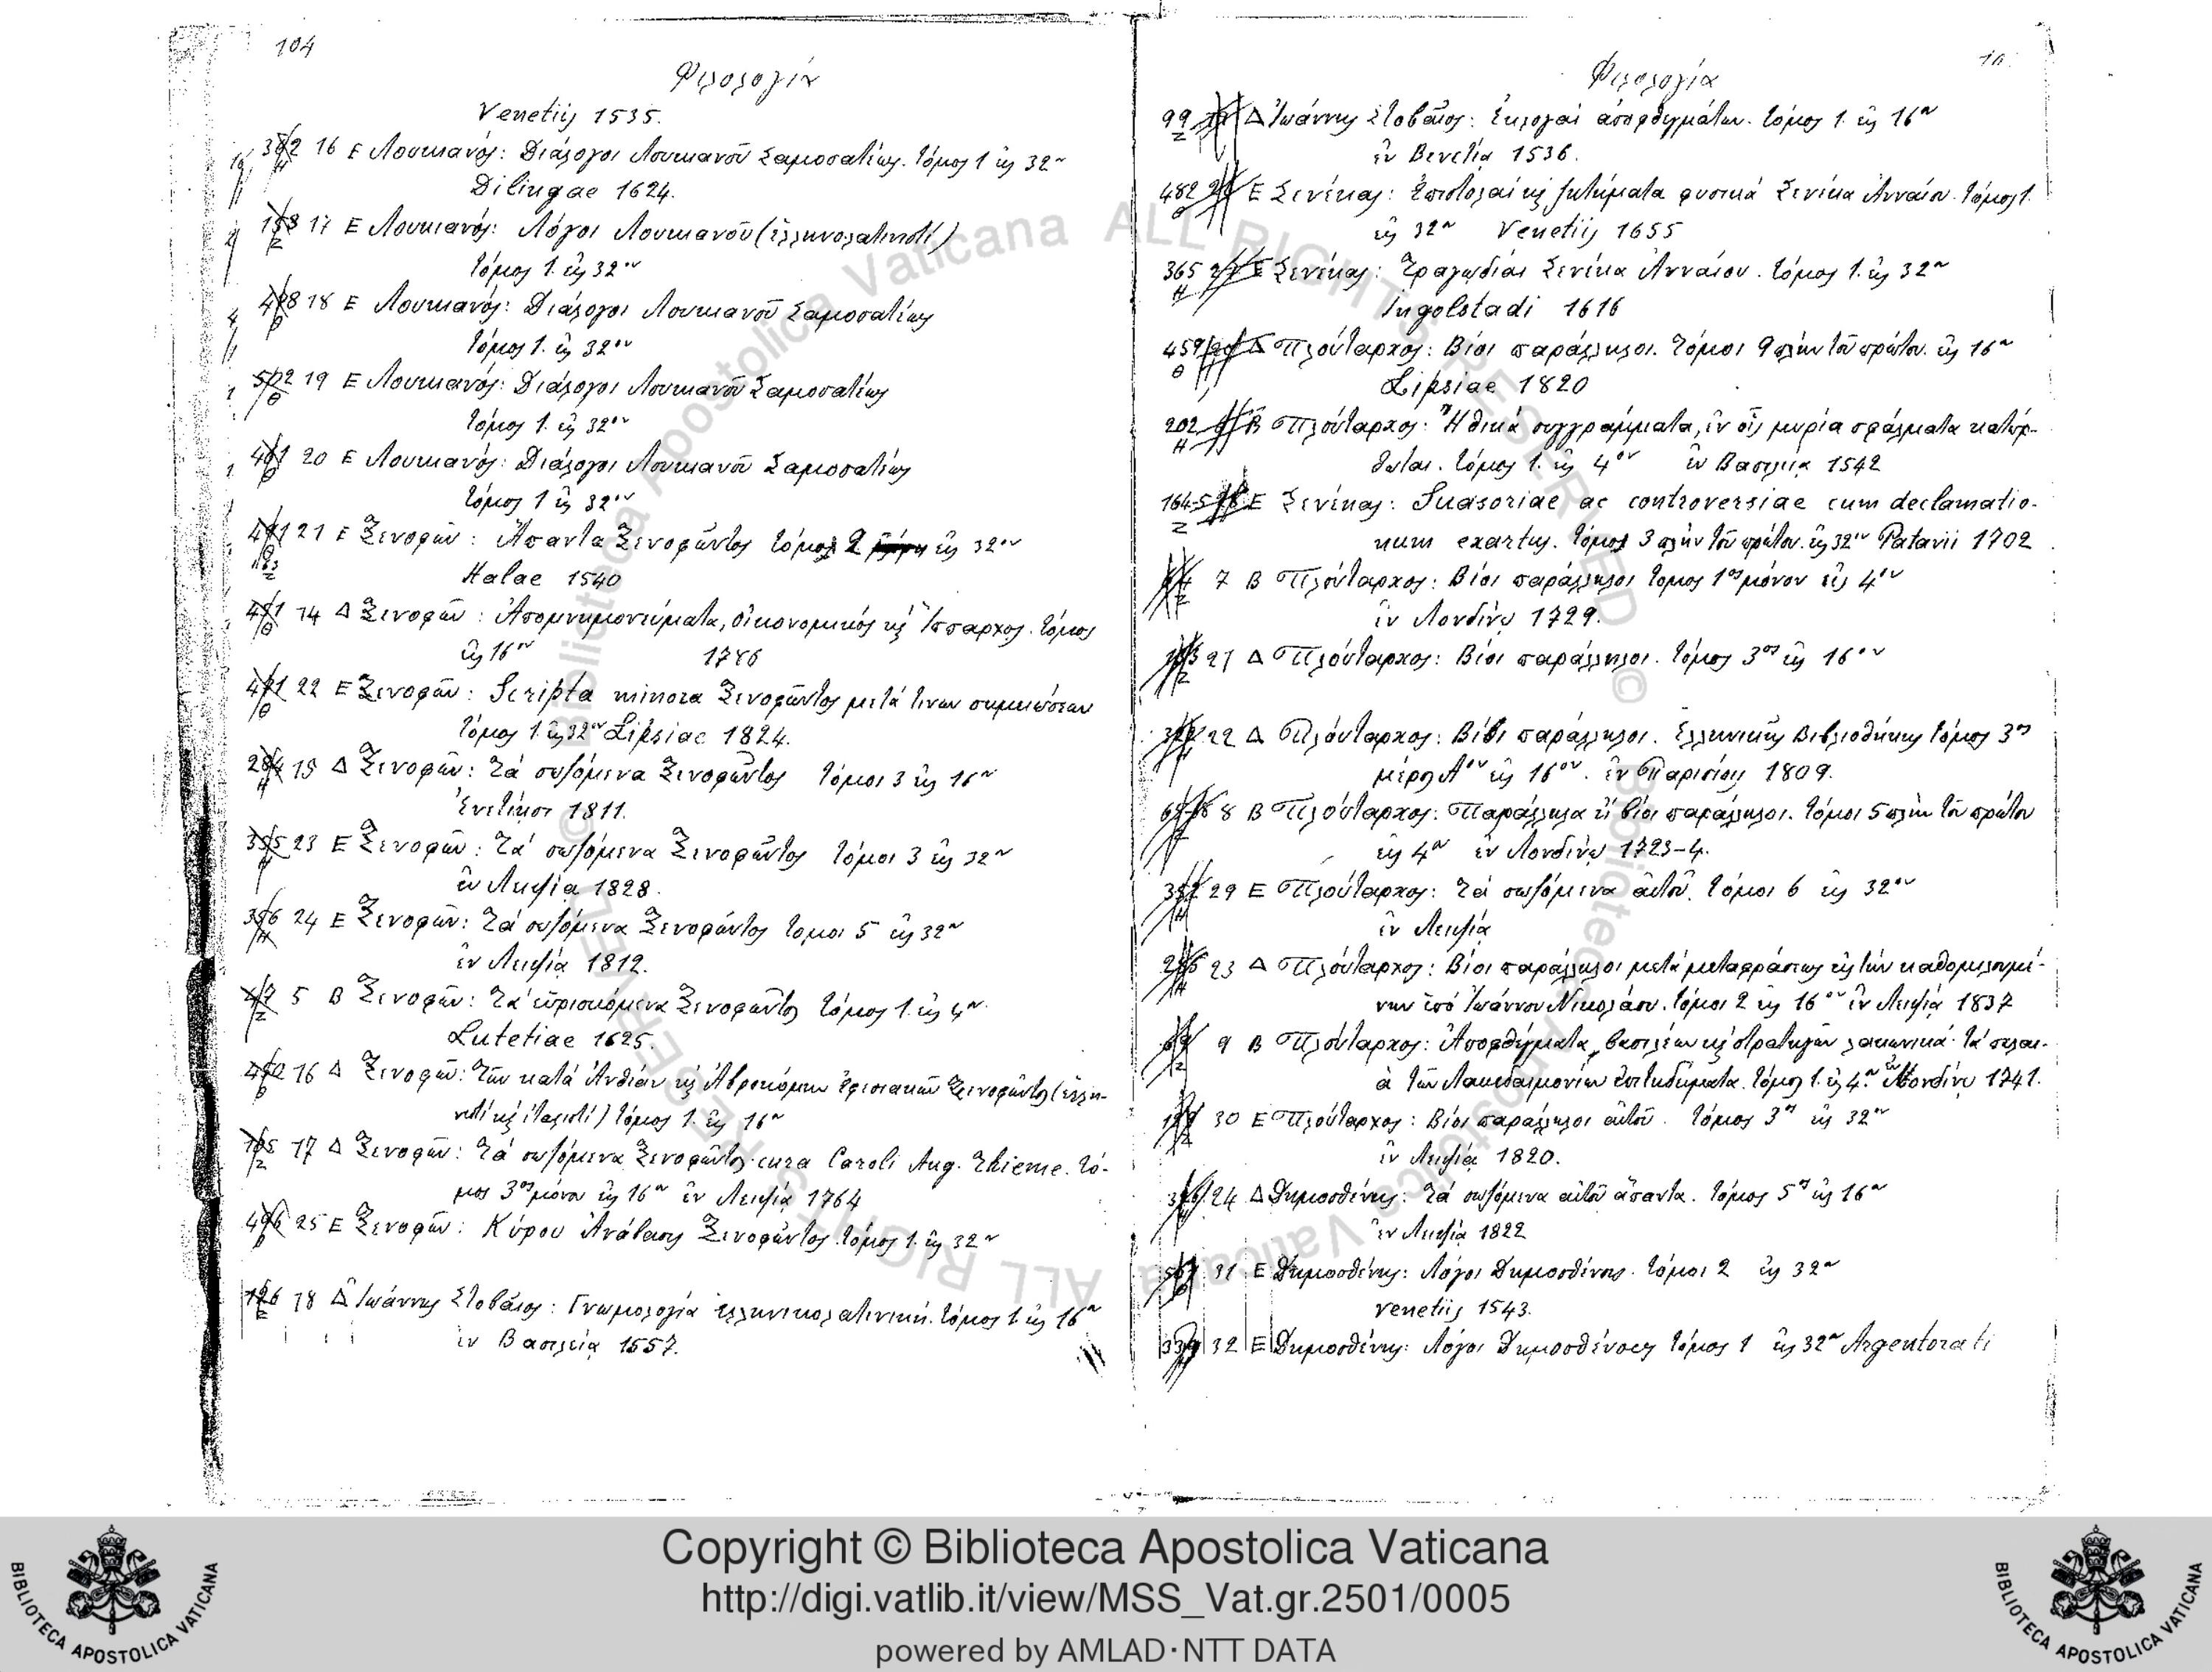 104
Φιλολογία
Venetiis 1535.
16 Ε Λουκιανός: Διάλογοι Λουκιανοῦ Σαμοσατέως. τόμος 1 εἰς 32ον
Dilingae 1624.
17 Ε Λουκιανός: Λόγοι Λουκιανοῦ (ἑλληνολατινιστί)
τόμος 1. εἰς 32ον
18 Ε Λουκιανός: Διάλογοι Λουκιανοῦ Σαμοσατέως
τόμος 1. εἰς 32ον
19 Ε Λουκιανός: Διάλογοι Λουκιανοῦ Σαμοσατέως
τόμος 1. εἰς 32ον
20 Ε Λουκιανός: Διάλογοι Λουκιανοῦ Σαμοσατέως
τόμος 1 εἰς 32ον
21 Ε Ξενοφῶν: Ἅπαντα Ξενοφῶντος τόμοι 2 εἰς 32ον
Halae 1540
14 Δ Ξενοφῶν: Ἀπομνημονεύματα, οἰκονομικός κ Ἵππαρχος. τόμος
εἰς 16ον 1786
22 Ε Ξενοφῶν: Scripta minora Ξενοφῶντος μετά τινων σημειώσεων
τόμος 1. εἰς 32ον Lipsiae 1824.
15 Δ Ξενοφῶν: Τά σωζόμενα Ξενοφῶντος τόμοι 3 εἰς 16ον
Ἐνετίῃσι 1811.
23 Ε Ξενοφῶν: Τά σωζόμενα Ξενοφῶντος τόμοι 3 εἰς 32ον
ἐν Λειψίᾳ 1828.
24 Ε Ξενοφῶν: Τά σωζόμενα Ξενοφῶντος τομοι 5 εἰς 32ον
ἐν Λειψίᾳ 1812.
5 Β Ξενοφῶν: Τά εὑρισκόμενα Ξενοφῶντος τόμος 1. εἰς 4ον
Lutetiae 1625.
16 Δ Ξενοφῶν: Τῶν κατά Ἀνθίαν κ Ἁβροκόμην Ἐφεσιακῶν Ξενοφῶντος (ἑλλη-
νιστί κ ἰταλιστί) τόμος 1. εἰς 16ον
17 Δ Ξενοφῶν: Τά σωζόμενα Ξενοφῶντος cura Caroli Aug. Thieme. τό-
μος 3ος μόνον εἰς 16ον ἐν Λειψίᾳ 1764
25 Ε Ξενοφῶν: Κύρου Ἀνάβασις Ξενοφῶντος. τόμος 1. εἰς 32ον
18 Δ Ἰωάννης Στοβαῖος: Γνωμολογία ἑλληνικολατινική. τόμος 1. εἰς 16ον
ἐν Βασιλείᾳ 1557.
Φιλολογία
99 Δ Ἰωάννης Στοβαῖος: Ἐκλογαί ἀποφθεγμάτων. τόμος 1. εἰς 16ον
ἐν Βενετίᾳ 1536.
482 Ε Σενέκας: Ἐπιστολαί κ ζητήματα φυσικά Σενέκα Ἀνναίου. τόμος 1.
εἰς 32ον Venetiis 1655
365 Ε Σενέκας: Τραγῳδίαι Σενέκα Ἀνναίου. τόμος 1. εἰς 32ον
Ingolstadi 1616
459 Δ Πλούταρχος: Βίοι παράλληλοι. τόμοι 9 πλήν τοῦ πρώτου. εἰς 16ον
Lipsiae 1820
202 Β Πλούταρχος: Ἠθικά συγγράμματα, ἐν οἷς μυρία σφάλματα κατώρ-
θωται. τόμος 1. εἰς 4ον ἐν Βασιλείᾳ 1542
164-5 Ε Σενέκας: Suasoriae ac controversiae cum declamatio-
num exartus. τόμοι 3 πλήν τοῦ πρώτου. εἰς 32ον Patavii 1702
7 Β Πλούταρχος: Βίοι παράλληλοι τομος 1ος μόνον εἰς 4ον
ἐν Λονδίνῳ 1729.
21 Δ Πλούταρχος: Βίοι παράλληλοι. τόμος 3ος εἰς 16ον
22 Δ Πλούταρχος: Βίοι παράλληλοι. Ἑλληνικῆς Βιβλιοθήκης τόμος 3ος
μέρος Αον εἰς 16ον. ἐν Παρισίοις 1809.
8 Β Πλούταρχος: Παράλληλα ἤ βίοι παράλληλοι. τόμοι 5 πλήν τοῦ πρώτου
εἰς 4ον ἐν Λονδίνῳ 1723-4.
29 Ε Πλούταρχος: Τά σωζόμενα αὐτοῦ. τόμοι 6 εἰς 32ον
ἐν Λειψίᾳ
23 Δ Πλούταρχος: Βίοι παράλληλοι μετά μεταφράσεως εἰς τήν καθομιλουμέ-
νην ὑπό Ἰωάννου Νικολάου. τόμοι 2 εἰς 16ον ἐν Λειψίᾳ 1837
9 Β Πλούταρχος: Ἀποφθέγματα βασιλέων κ στρατηγῶν λακωνικά· τά παλαι-
ά τῶν Λακεδαιμονίων ἐπιτηδεύματα. τόμος 1. εἰς 4ον ἐν Λονδίνῳ 1741.
30 Ε Πλούταρχος: Βίοι παράλληλοι αὐτοῦ. τόμος 3ος εἰς 32ον
ἐν Λειψίᾳ 1820.
24 Δ Δημοσθένης: Τά σωζόμενα αὐτοῦ ἅπαντα. τόμος 5ος εἰς 16ον
ἐν Λειψίᾳ 1822
31 Ε Δημοσθένης: Λόγοι Δημοσθένους. τόμοι 2 εἰς 32ον
Venetiis 1543.
32 Ε Δημοσθένης: Λόγοι Δημοσθένους τόμος 1 εἰς 32ον Argentorati
© Biblioteca Apostolica Vaticana ALL RIGHTS RESERVED
Copyright © Biblioteca Apostolica Vaticana
http://digi.vatlib.it/view/MSS_Vat.gr.2501/0005
powered by AMLAD·NTT DATA
BIBLIOTECA APOSTOLICA VATICANA
BIBLIOTECA APOSTOLICA VATICANA